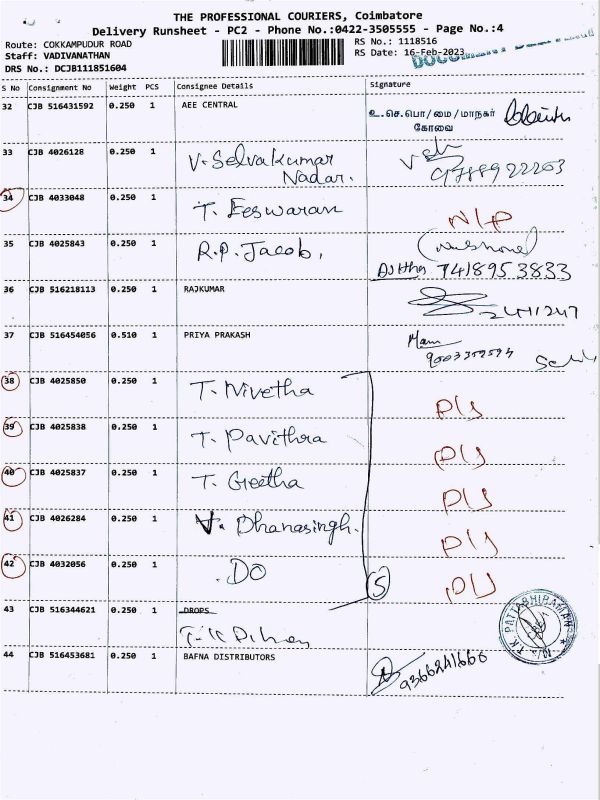 THE PROFESSIONAL COURIERS, Coimbatore
Delivery Runsheet - PC2 - Phone No.:0422-3505555 - Page No.:4
Route: COKKAMPUDUR ROAD
RS No.: 1118516
Staff: VADIVANATHAN
RS Date: 16-Feb-2023
DRS No.: DCJB111851604
S No Consignment No Weight PCS Consignee Details Signature
32 CJB 516431592 0.250 1 AEE CENTRAL
உ.செ.பொ/மை/மாநகர்
கோவை
33 CJB 4026128 0.250 1 V. Selvakumar
Nadar.
34 CJB 4033048 0.250 1 T. Eeswaran N/P
35 CJB 4025843 0.250 1 R.P. Jacob,
7418953833
36 CJB 516218113 0.250 1 RAJKUMAR
37 CJB 516454056 0.510 1 PRIYA PRAKASH
38 CJB 4025850 0.250 1 T. Nivetha
39 CJB 4025838 0.250 1 T. Pavithra
40 CJB 4025837 0.250 1 T. Geetha
41 CJB 4026284 0.250 1 V. Dhanasingh.
42 CJB 4032056 0.250 1 DO
5
43 CJB 516344621 0.250 1 DROPS
T.K PATTABHIRAMAN
44 CJB 516453681 0.250 1 BAFNA DISTRIBUTORS
9366241666